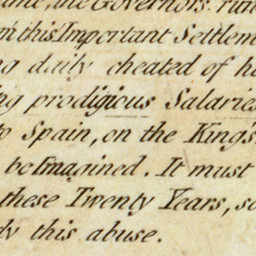 the Governors. run
this Important Settlem
daily cheated of h
prodigious Salaries
Spain, on the King's
be Imagined. It must
these Twenty Years, so
this abuse.